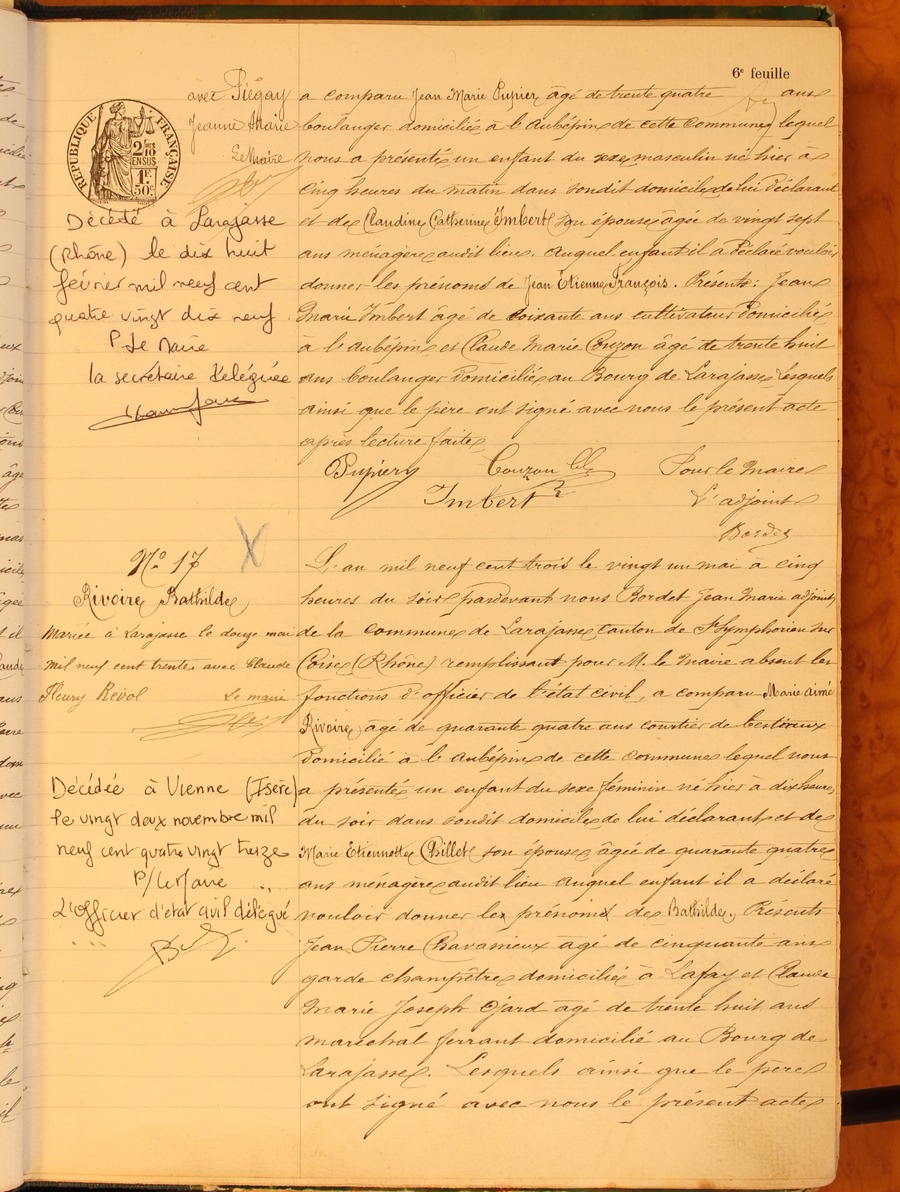 6e feuille
RÉPUBLIQUE FRANÇAISE
2/10 EN SUS
1F.
50c.
avec Piégay
Jeanne Marie
Le Maire
Décédé à Larajasse
(Rhône) le dix huit
février mil neuf cent
quatre vingt dix neuf
P/ Le Maire
la secrétaire déléguée
a comparu Jean Marie Pupier âgé de trente quatre ans
boulanger domicilié à l'Aubépin de cette commune lequel
nous a présenté un enfant du sexe masculin né hier à
cinq heures du matin dans sondit domicile de lui déclarant
et de Claudine Catherine Imbert son épouse âgée de vingt sept
ans ménagère audit lieu. Auquel enfant il a déclaré vouloir
donner les prénoms de Jean Etienne François. Présents: Jean
Marie Imbert âgé de soixante ans cultivateur domicilié
a l'Aubépin et Claude Marie Couzon âgé de trente huit
ans boulanger domicilié au Bourg de Larajasse Lesquels
ainsi que le père ont signé avec nous le présent acte
après lecture faite
Pupier Couzon Cl. Pour le Maire
Imbert L'adjoint
Bordet
No 17
Rivoire Bathilde
Mariée à Larajasse le douze mai
mil neuf cent trente avec Claude
Fleury Revol Le maire
Décédée à Vienne (Isère)
le vingt deux novembre mil
neuf cent quatre vingt treize
P/Le Maire
L'officier d'état civil délégué
L'an mil neuf cent trois le vingt un mai à cinq
heures du soir pardevant nous Bordet Jean Marie adjoint
de la commune de Larajasse canton de St Symphorien sur
Coise (Rhône) remplissant pour M. le Maire absent les
fonctions d'officier de l'état civil, a comparu Marie aimé
Rivoire, âgé de quarante quatre ans courtier de bestiaux
domicilié à l'Aubépin de cette commune lequel nous
a présenté un enfant du sexe féminin né hier à dix heures
du soir dans sondit domicile de lui déclarant et de
Marie Etiennette Chillet son épouse âgée de quarante quatre
ans ménagère audit lieu auquel enfant il a déclaré
vouloir donner les prénoms de Bathilde. Présents
Jean Pierre Chavassieux âgé de cinquante ans
garde champêtre domicilié à Lafay et Claude
Marie Joseph Ojard âgé de trente huit ans
maréchal ferrant domicilié au Bourg de
Larajasse. Lesquels ainsi que le père
ont signé avec nous le présent acte